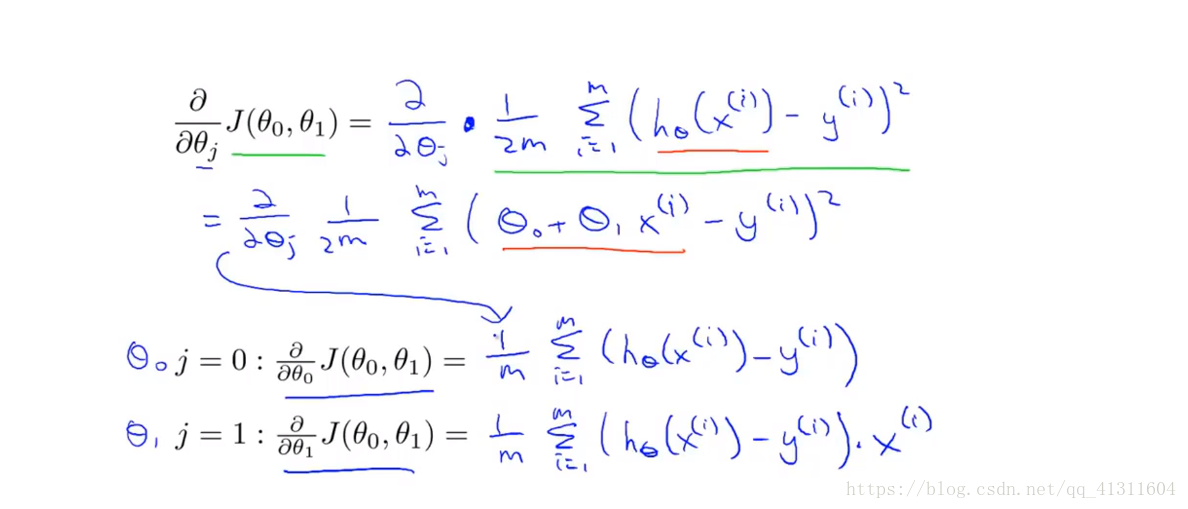 ∂/∂θⱼ J(θ₀, θ₁) = ∂/∂θⱼ · 1/2m Σᵢ₌₁ᵐ (hθ(x⁽ⁱ⁾) − y⁽ⁱ⁾)²
= ∂/∂θⱼ 1/2m Σᵢ₌₁ᵐ (θ₀ + θ₁ x⁽ⁱ⁾ − y⁽ⁱ⁾)²
θ₀ j = 0 : ∂/∂θ₀ J(θ₀, θ₁) = 1/m Σᵢ₌₁ᵐ (hθ(x⁽ⁱ⁾) − y⁽ⁱ⁾)
θ₁ j = 1 : ∂/∂θ₁ J(θ₀, θ₁) = 1/m Σᵢ₌₁ᵐ (hθ(x⁽ⁱ⁾) − y⁽ⁱ⁾) · x⁽ⁱ⁾
https://blog.csdn.net/qq_41311604